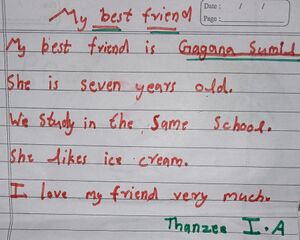 My best friend
Date : / /
Page :
My best friend is Gagana Sumil
She is seven years old.
We study in the same school.
She likes ice cream.
I love my friend very much.
Thanzee I.A